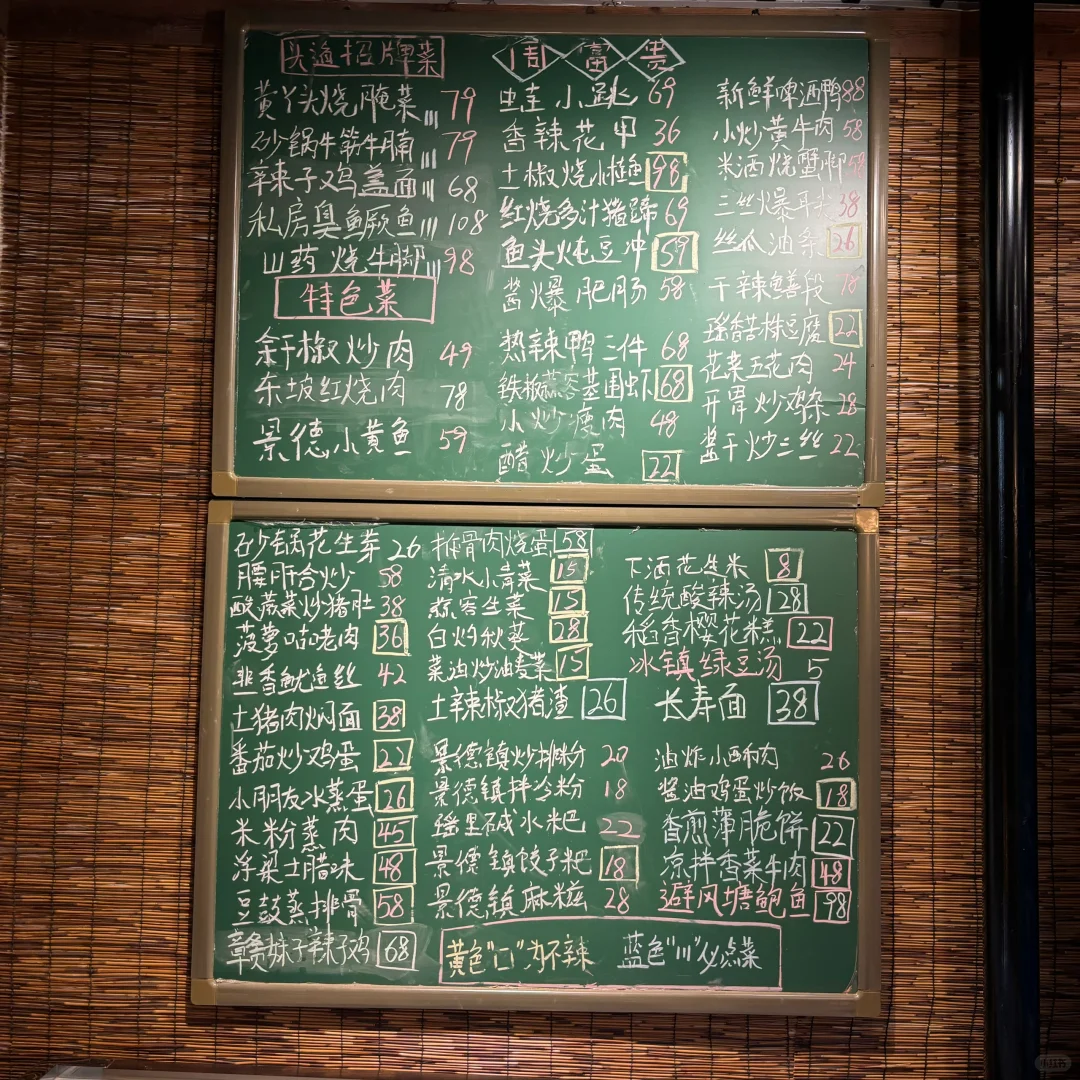 头道招牌菜
黄丫头烧腌菜 79
砂锅牛筋牛腩 79
辣子鸡盖面 68
私房臭鳜鱼 108
山药烧牛脚 98
特色菜
余干椒炒肉 49
东坡红烧肉 78
景德小黄鱼 59
周富贵
蛙小跳 69
香辣花甲 36
土椒烧小𩾃鱼 98
红烧多汁猪蹄 69
鱼头炖豆冲 59
酱爆肥肠 58
热辣鸭三件 68
铁板蒸容基围虾 68
小炒瘦肉 48
醋炒蛋 22
新鲜啤酒鸭 88
小炒黄牛肉 58
米洒烧蟹脚 58
三丝爆耳尖 38
丝瓜油条 26
干辣鳝段 78
瑶香苦株豆腐 22
花菜五花肉 24
开胃炒鸡杂 28
酱干炒三丝 22
砂锅花生芽 26
腰肝合炒 58
酸蕨菜炒猪肚 38
菠萝咕咾肉 36
韭香鱿鱼丝 42
土猪肉焖面 38
番茄炒鸡蛋 22
小朋友水蒸蛋 26
米粉蒸肉 45
浮梁土腊味 48
豆鼓蒸排骨 58
赣妹子辣子鸡 68
排骨肉烧蛋 58
清水小青菜 15
蒜容生菜 15
白灼秋葵 28
菜油炒油麦菜 15
土辣椒猪渣 26
景德镇炒排粉 20
景德镇拌冷粉 18
瑶里碱水粑 22
景德镇饺子粑 18
景德镇麻糍 28
下洒花生米 8
传统酸辣汤 28
稻香樱花糕 22
冰镇绿豆汤 5
长寿面 38
油炸小酥肉 26
酱油鸡蛋炒饭 18
香煎薄脆饼 22
凉拌香菜牛肉 48
避风塘鲍鱼 98
黄色"口"为不辣 蓝色"III"必点菜